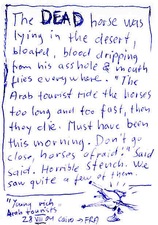 The DEAD horse was
lying in the desert,
bloated, blood dripping
from his asshole & mouth
flies everywhere. "The
Arab tourist ride the horses
too long and too fast, then
they die. Must have been
this morning. Don't go
close, horses afraid!" Said
Said. Horrible Stench. We
saw quite a few of them.
"Young rich
Arab tourists
28 VIII 04 Cairo → FRA